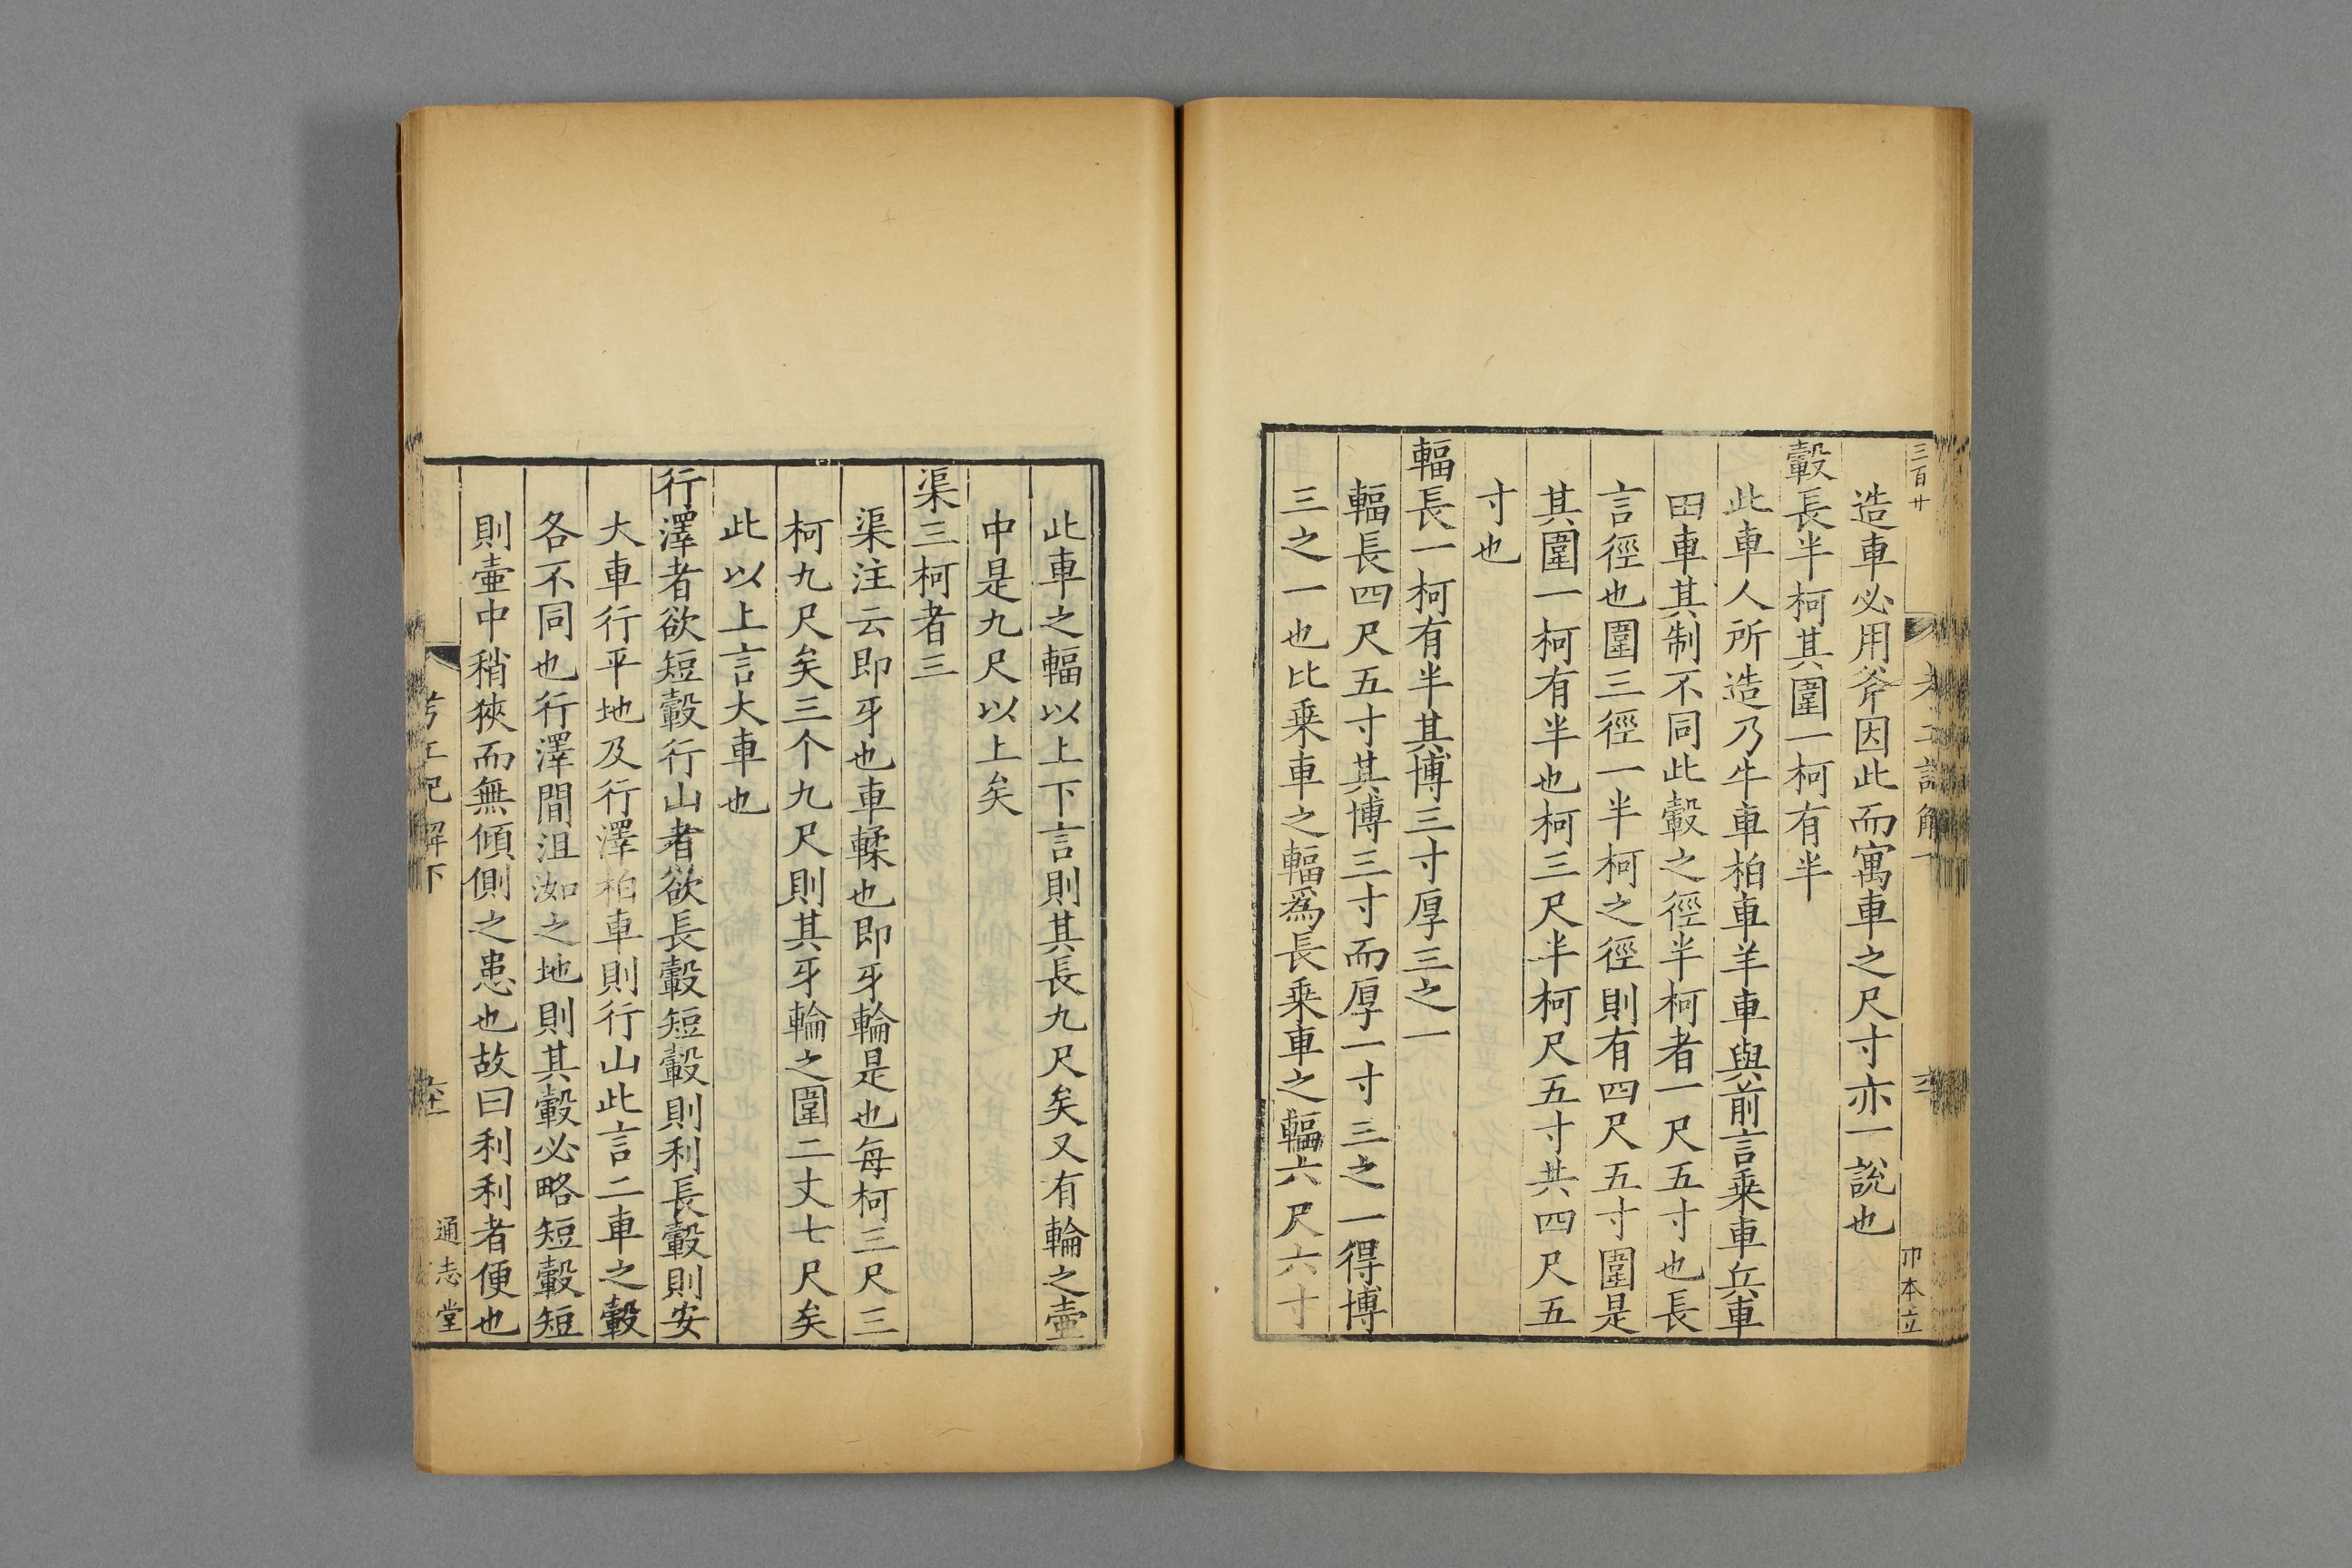 三百廿
造車必用斧因此而寓車之尺寸亦一說也
轂長半柯其圍一柯有半
此車人所造乃牛車柏車羊車與前言乗車兵車
田車其制不同此轂之徑半柯者一尺五寸也長
言徑也圍三徑一半柯之徑則有四尺五寸圍是
其圍一柯有半也柯三尺半柯尺五寸共四尺五
寸也
輻長一柯有半其博三寸厚三之一
輻長四尺五寸其博三寸而厚一寸三之一得博
三之一也比乗車之輻爲長乗車之輻六尺六寸
此車之輻以上下言則其長九尺矣又有輪之壷
中是九尺以上矣
渠三柯者三
渠注云即牙也車輮也即牙輪是也每柯三尺三
柯九尺矣三个九尺則其牙輪之圍二丈七尺矣
此以上言大車也
行澤者欲短轂行山者欲長轂短轂則利長轂則安
大車行平地及行澤柏車則行山此言二車之轂
各不同也行澤間沮洳之地則其轂必略短轂短
則壷中稍狹而無傾側之患也故曰利利者便也
考工記解下
通志堂